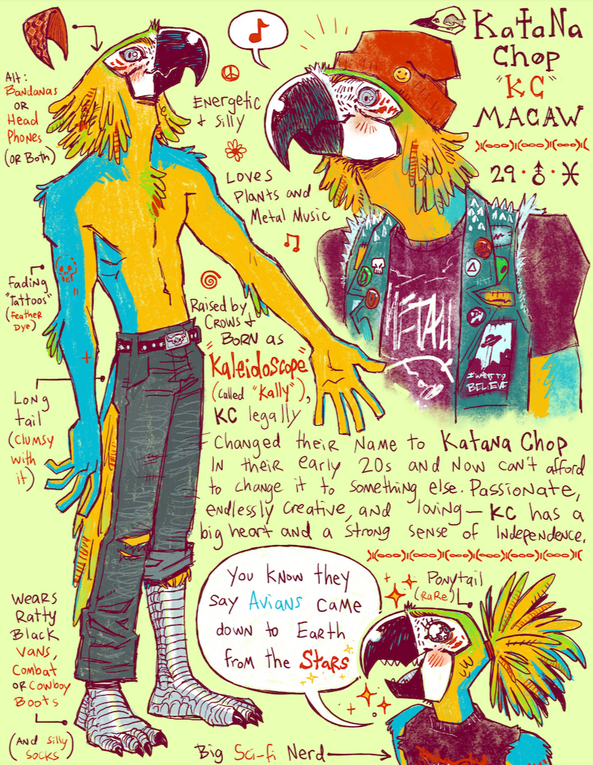 KaTaNa
Chop
"KC"
MACAW
29 · ⚦ · ♓
Alt:
Bandanas
OR
Head
Phones
(OR Both)
Energetic
+ Silly
Loves
Plants and
Metal Music
METAL
I WANT TO
BELIEVE
Fading
"Tattoos"
(Feather
Dye)
Long
tail
(clumsy
with
it)
Raised by
Crows +
Born as
"Kaleidoscope"
(called "Kally"),
KC legally
Changed their Name to Katana Chop
In their early 20s and Now can't afford
to change it to something else. Passionate,
endlessly creative, and loving— KC has a
big heart and a strong sense of Independence.
Wears
Ratty
Black
Vans,
Combat
OR Cowboy
Boots
(And silly
socks)
You know they
say Avians came
down to Earth
from the Stars
Ponytail
(RaRe)
Big Sci-fi Nerd